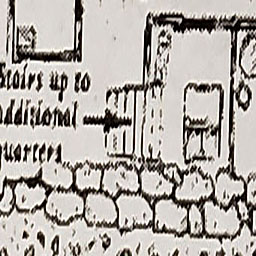 Stairs up to
additional
quarters